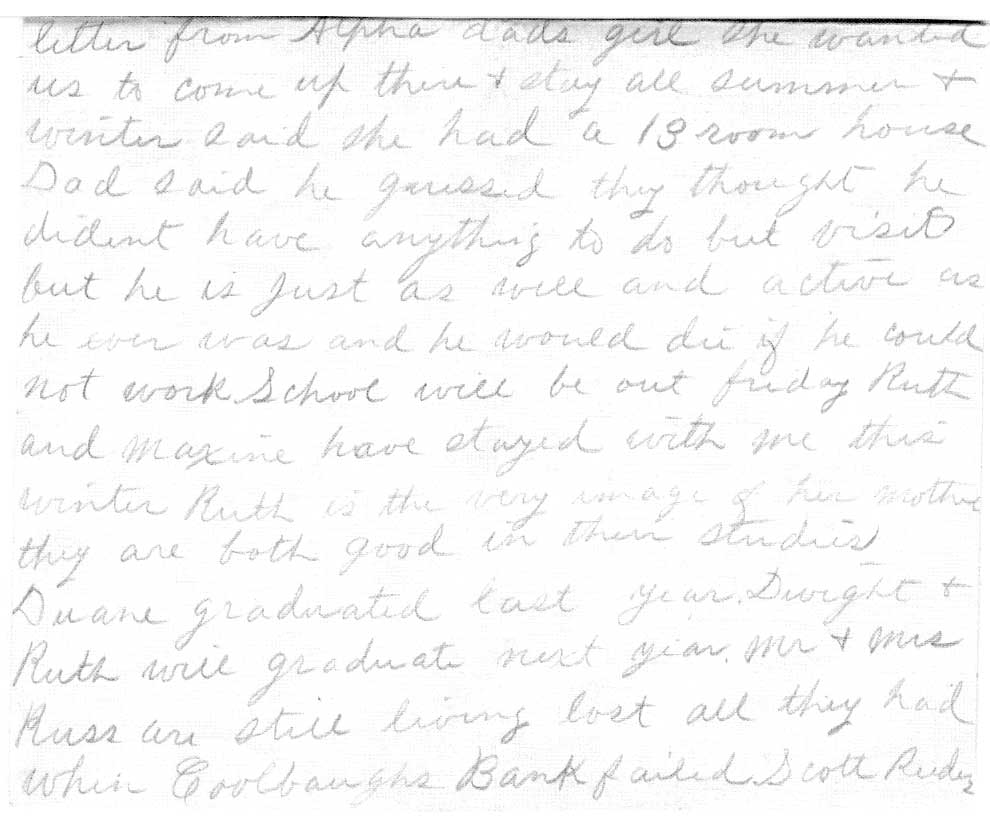 letter from Alpha dads girl she wanted
us to come up there & stay all summer &
winter said she had a 13 room house
Dad said he guessed they thought he
dident have anything to do but visit
but he is just as well and active as
he ever was and he would die if he could
not work School will be out friday Ruth
and Maxine have stayed with me this
winter Ruth is the very image of her mother
they are both good in their studies
Duane graduated last year. Dwight &
Ruth will graduate next year. Mr & Mrs
Russ are still living lost all they had
when Coolbaughs Bank failed. Scott